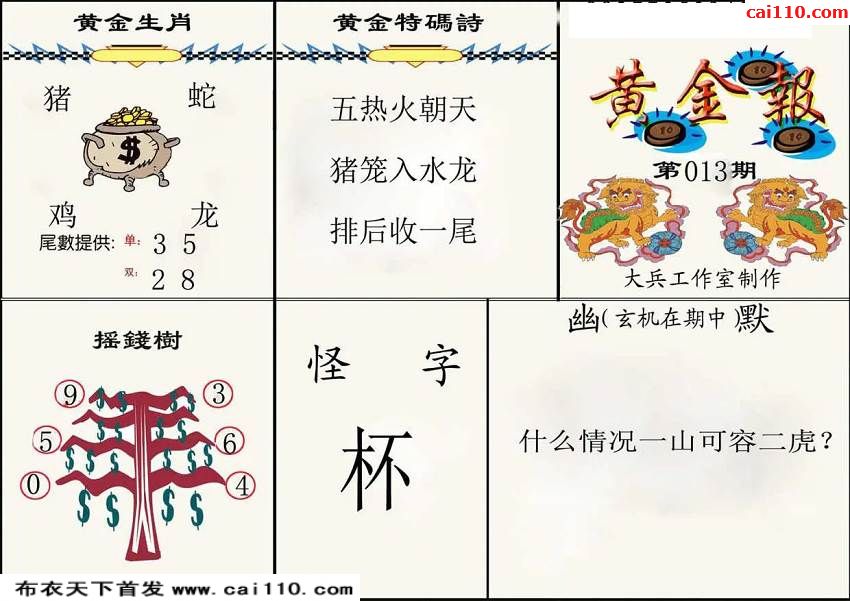 cai110.com
黄金生肖
猪 蛇
鸡 龙
尾數提供: 单: 3 5
双: 2 8
黄金特碼詩
五热火朝天
猪笼入水龙
排后收一尾
黄金報
第013期
大兵工作室制作
摇錢樹
9 3
5 6
0 4
怪字
杯
幽(玄机在期中)默
什么情况一山可容二虎?
布衣天下首发 www.cai110.com